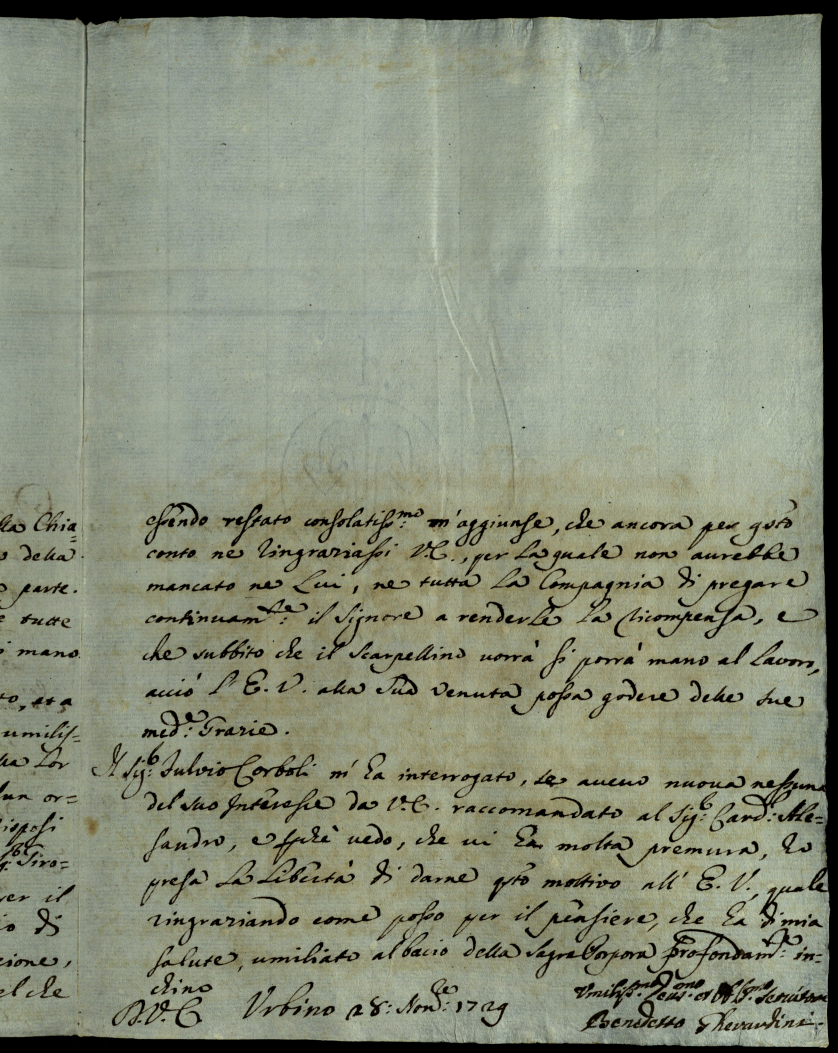 lla Chia=
o della
e parte.
e tutte
i mano
to, et a
umilis=
lla Lor
lun or=
risposi
q.r Giro=
per il
io di
cione,
el che
essendo restato consolatiss.mo m'aggiunse, che ancora per q̃sto
conto ne ringraziassi V.E., per la quale non aurebbe
mancato ne Lui, ne tutta la Compagnia di pregare
continuam.te il Signore a renderle la ricompensa, e
che subbito che il Scarpellino uorrà si porrà mano al Lavoro,
acciò l'E.V. alla Sua venuta possa godere delle sue
med.e Grazie.
Il Sig.r Fulvio Corboli m'ha interrogato, se aueuo nuova nessuna
del suo Interesse da V.E. raccomandato al Sig.r Card. Ale=
sandro, e p̃chè vedo, che ui ha molta premura, ho
presa la Libertà di darne q̃sto mottivo all'E.V., quale
ringraziando come posso per il pensiere, che ha di mia
salute, umiliato al bacio della Sagra Porpora profondam.te in=
chino
D.V.E. Urbino 28: Nov.re 1729
Umiliss.mo Deu.mo et Obb.mo Seruitore
Benedetto Gherardini